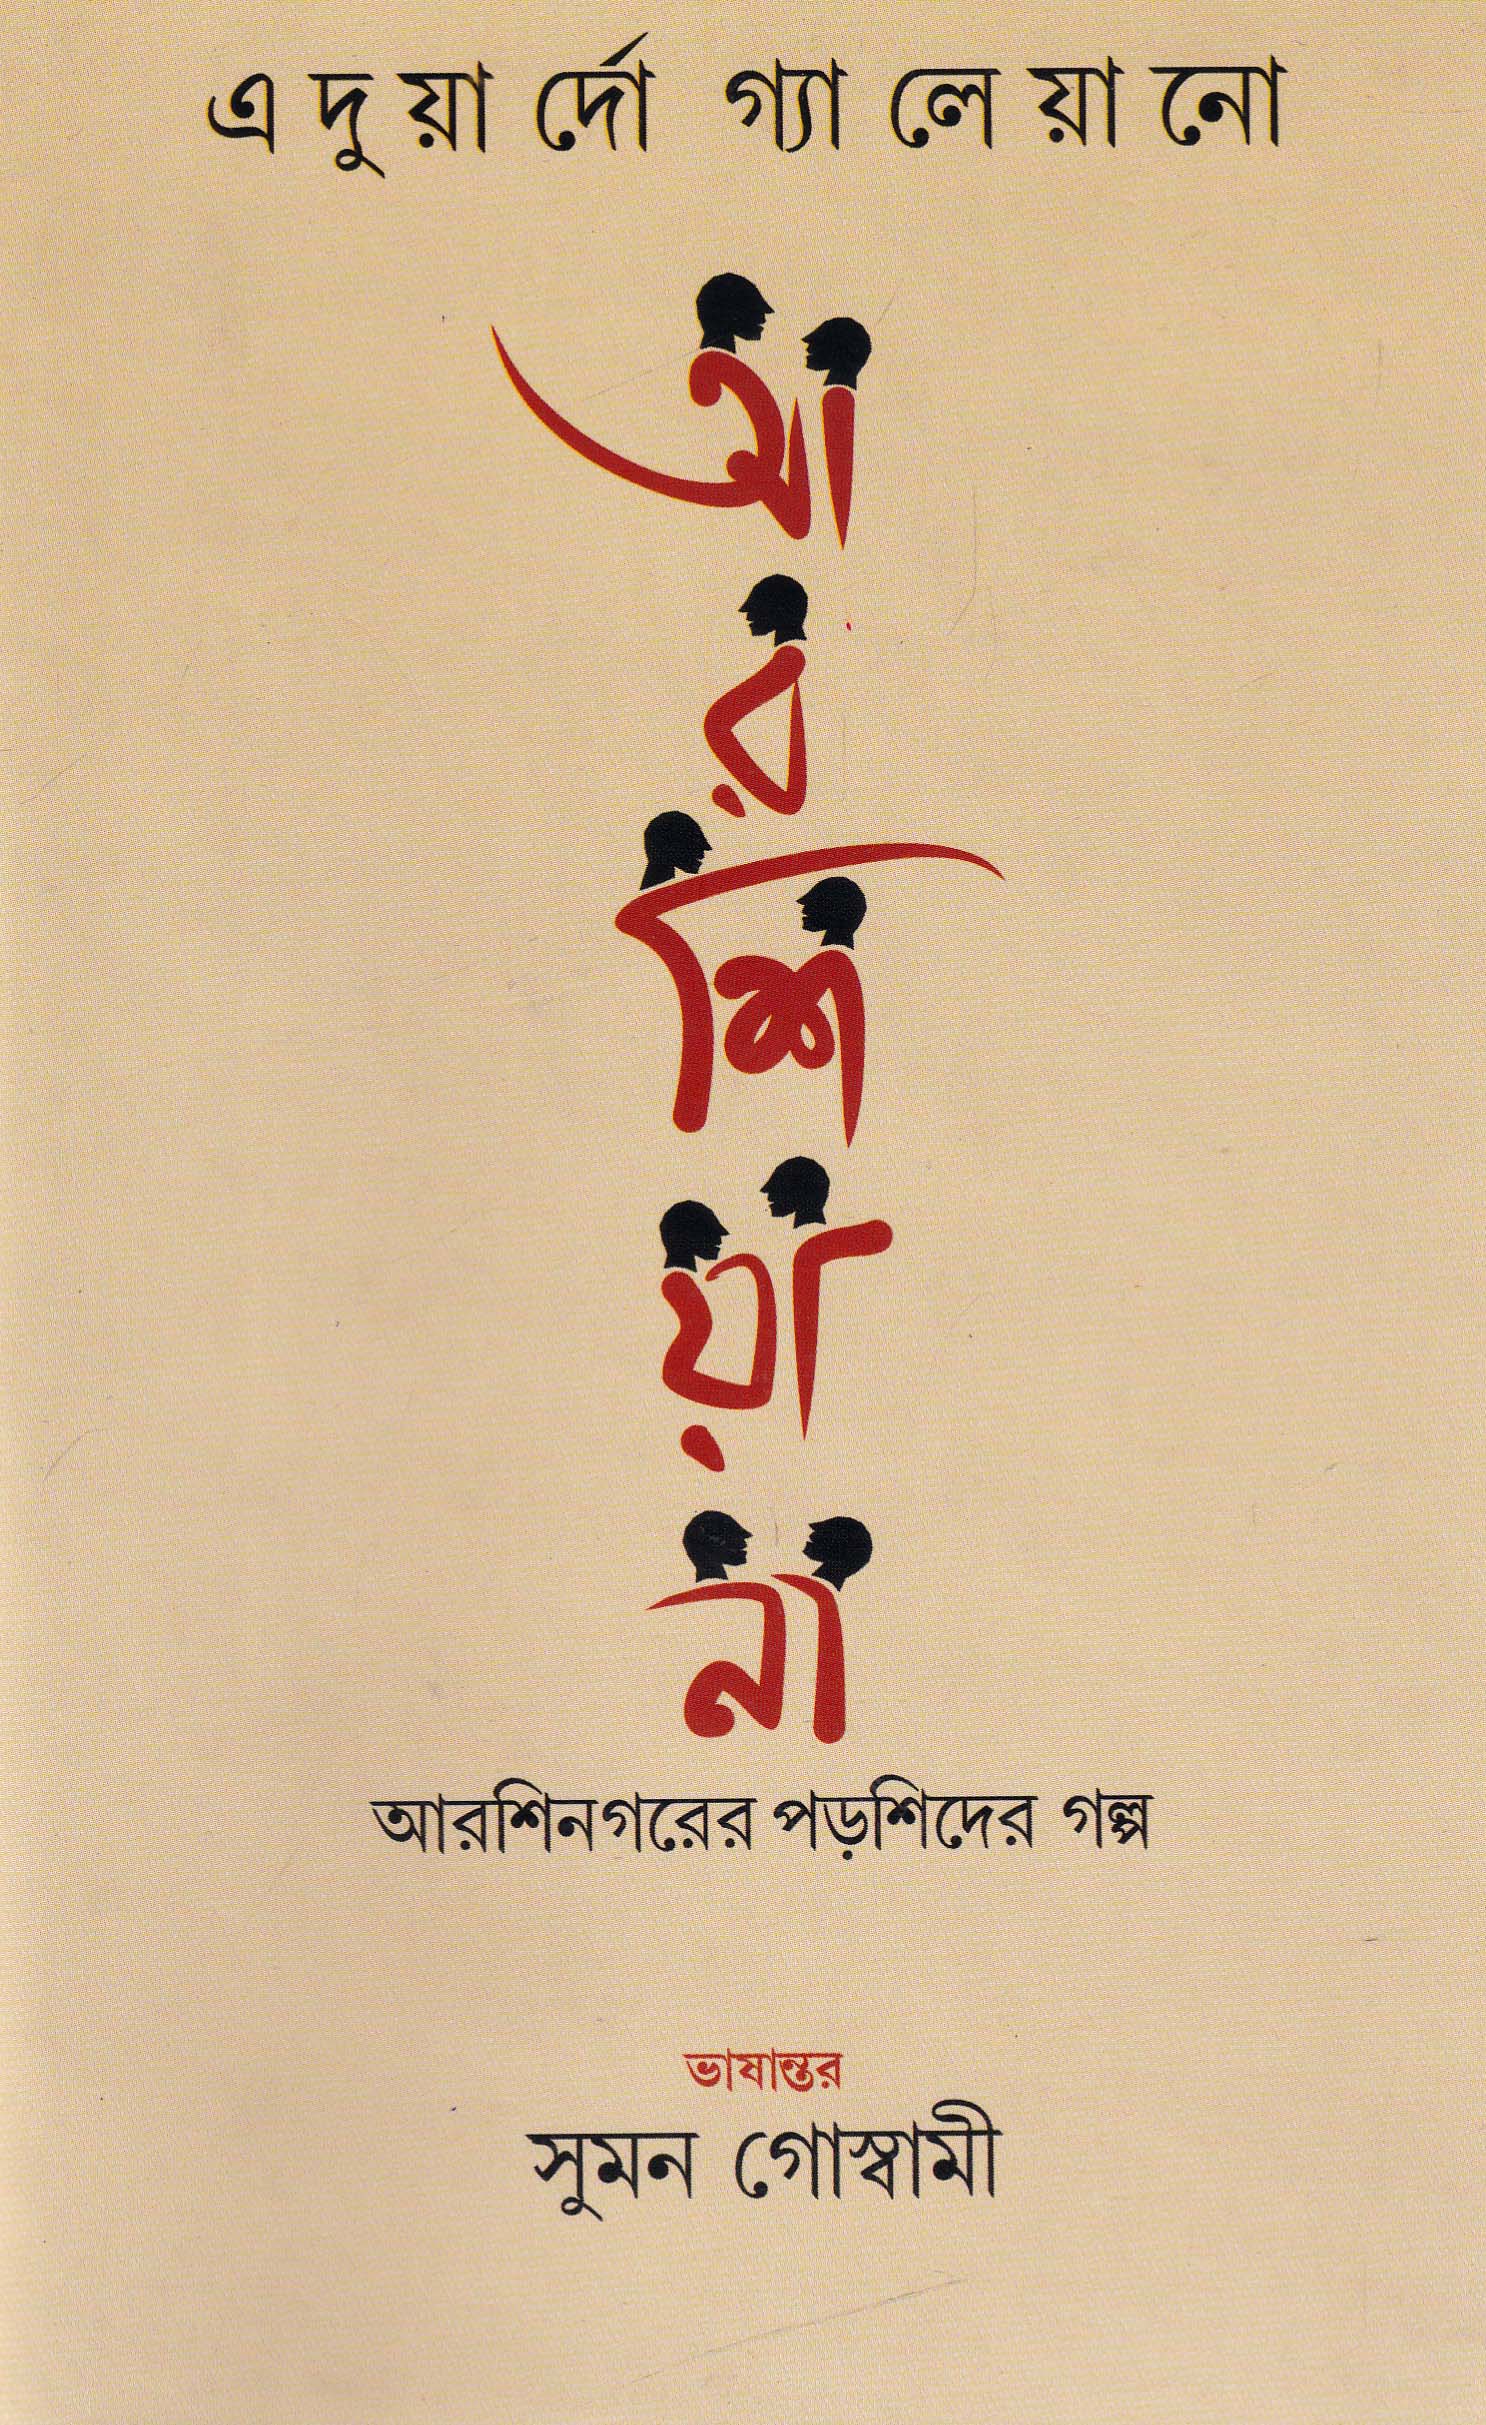 এদুয়ার্দো গ্যালেয়ানো
আ
র
শি
য়া
না
আরশিনগরের পড়শিদের গল্প
ভাষান্তর
সুমন গোস্বামী